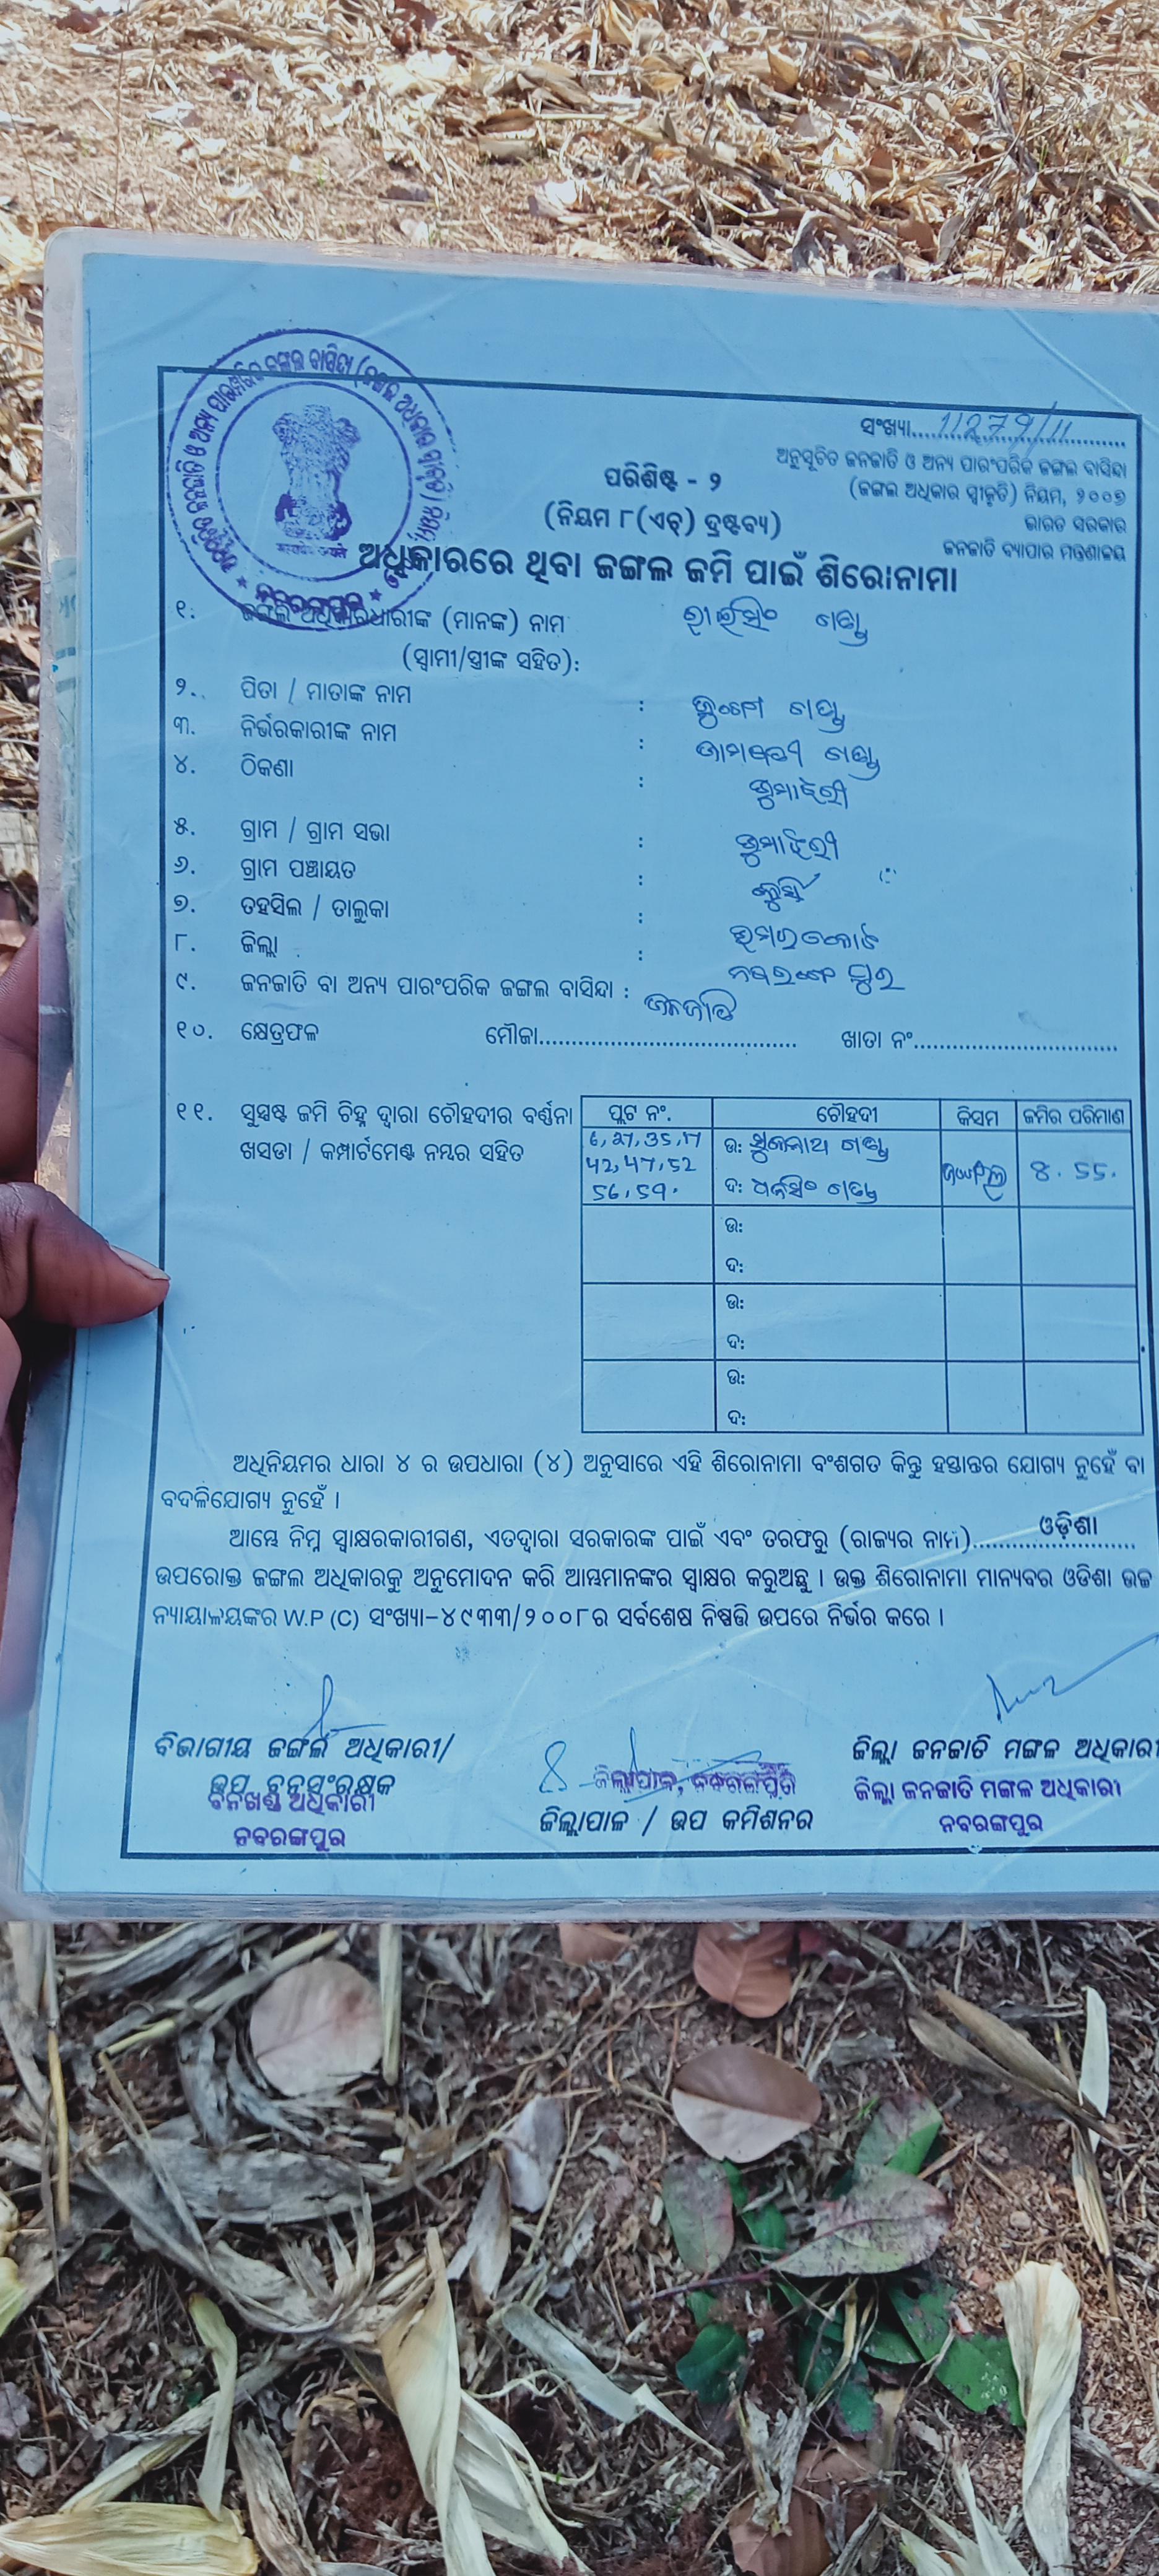 ସଂଖ୍ୟା.....11279/11
ଅନୁସୂଚିତ ଜନଜାତି ଓ ଅନ୍ୟ ପାରଂପରିକ ଜଙ୍ଗଲ ବାସିନ୍ଦା
(ଜଙ୍ଗଲ ଅଧିକାର ସ୍ୱୀକୃତି) ନିୟମ, ୨୦୦୭
ଭାରତ ସରକାର
ଜନଜାତି ବ୍ୟାପାର ମନ୍ତ୍ରଣାଳୟ
ପରିଶିଷ୍ଟ - ୨
(ନିୟମ ୮(ଏଚ୍) ଦ୍ରଷ୍ଟବ୍ୟ)
ଅଧିକାରରେ ଥିବା ଜଙ୍ଗଲ ଜମି ପାଇଁ ଶିରୋନାମା
୧. ଜଙ୍ଗଲ ଅଧିକାରଧାରୀଙ୍କ (ମାନଙ୍କ) ନାମ
(ସ୍ୱାମୀ/ସ୍ତ୍ରୀଙ୍କ ସହିତ):
୨. ପିତା / ମାତାଙ୍କ ନାମ :
୩. ନିର୍ଭରକାରୀଙ୍କ ନାମ :
୪. ଠିକଣା :
୫. ଗ୍ରାମ / ଗ୍ରାମ ସଭା :
୬. ଗ୍ରାମ ପଞ୍ଚାୟତ :
୭. ତହସିଲ / ତାଲୁକା : ଉମରକୋଟ
୮. ଜିଲ୍ଲା : ନବରଙ୍ଗପୁର
୯. ଜନଜାତି ବା ଅନ୍ୟ ପାରଂପରିକ ଜଙ୍ଗଲ ବାସିନ୍ଦା : ଜନଜାତି
୧୦. କ୍ଷେତ୍ରଫଳ ମୌଜା..... ଖାତା ନଂ.....
୧୧. ସୁସ୍ପଷ୍ଟ ଜମି ଚିହ୍ନ ଦ୍ୱାରା ଚୌହଦୀର ବର୍ଣ୍ଣନା
ଖସଡା / କମ୍ପାର୍ଟମେଣ୍ଟ ନମ୍ୱର ସହିତ
ପ୍ଲଟ ନଂ. ଚୌହଦୀ କିସମ ଜମିର ପରିମାଣ
6, 27, 35, 17
42, 47, 52
56, 59.
ଉ:
ଦ:
ଜଙ୍ଗଲ
୪. 55.
ଉ:
ଦ:
ଉ:
ଦ:
ଉ:
ଦ:
ଅଧିନିୟମର ଧାରା ୪ ର ଉପଧାରା (୪) ଅନୁସାରେ ଏହି ଶିରୋନାମା ବଂଶଗତ କିନ୍ତୁ ହସ୍ତାନ୍ତର ଯୋଗ୍ୟ ନୁହେଁ ବା
ବଦଳିଯୋଗ୍ୟ ନୁହେଁ ।
ଆମ୍ଭେ ନିମ୍ନ ସ୍ୱାକ୍ଷରକାରୀଗଣ, ଏତଦ୍ୱାରା ସରକାରଙ୍କ ପାଇଁ ଏବଂ ତରଫରୁ (ରାଜ୍ୟର ନାମ).....ଓଡ଼ିଶା
ଉପରୋକ୍ତ ଜଙ୍ଗଲ ଅଧିକାରକୁ ଅନୁମୋଦନ କରି ଆମ୍ଭମାନଙ୍କର ସ୍ୱାକ୍ଷର କରୁଅଛୁ । ଉକ୍ତ ଶିରୋନାମା ମାନ୍ୟବର ଓଡିଶା ଉଚ୍ଚ
ନ୍ୟାୟାଳୟଙ୍କର W.P (C) ସଂଖ୍ୟା-୪୯୩୩/୨୦୦୮ର ସର୍ବଶେଷ ନିଷ୍ପତ୍ତି ଉପରେ ନିର୍ଭର କରେ ।
ବିଭାଗୀୟ ଜଙ୍ଗଲ ଅଧିକାରୀ/
ଉପ ବନସଂରକ୍ଷକ
ବନଖଣ୍ଡ ଅଧିକାରୀ
ନବରଙ୍ଗପୁର
ଜିଲ୍ଲାପାଳ, ନବରଙ୍ଗପୁର
ଜିଲ୍ଲାପାଳ / ଉପ କମିଶନର
ଜିଲ୍ଲା ଜନଜାତି ମଙ୍ଗଳ ଅଧିକାରୀ
ଜିଲ୍ଲା ଜନଜାତି ମଙ୍ଗଳ ଅଧିକାରୀ
ନବରଙ୍ଗପୁର